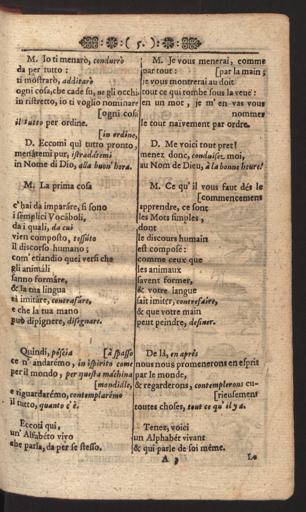 ( 5. )
M. Io ti menarò, condurrò
da per tutto:
ti mostrarò, additarò
ogni cosa, che cade su, ne gli occhi
in ristretto, io ti voglio nominare
[ogni cosa
il tutto per ordine.
[in ordine,
D. Eccomi quì tutto pronto,
menátemi pur, istradátemi
in Nome di Dio, alla buon' hora.
M. La prima cosa
c'hai da imparáre, si sono
i semplici Vocáboli,
da i quali, da cui
vien composto, tessúto
il discorso humano;
com' etiandio quei versi che
gli animáli
sanno formáre,
& la tua lingua
sà imitáre, contrafáre,
e che la tua mano
può dipígnere, disegnare.
Quindi, póscia [à spasso
ce n' andarémo, in ispirito come
per il mondo, per questa máchina
[mondiále,
e riguardarémo, contemplarémo
il tutto, quanto c'è.
Eccoti quì,
un' Alfabéto vivo
che parla, da per se stesso.
M. Je vous menerai, comme
par tout: [par la main;
je vous montrerai au doit
tout ce qui tombe sous la veuë:
en un mot, je m'en vas vous
nommer
le tout naïvement par ordre.
D. Me voici tout pret!
menez donc, conduisez moi,
au Nom de Dieu, à la bonne heure!
M. Ce qu'il vous faut dés le
[commencement
apprendre, ce sont
les Mots simples,
dont
le discours humain
est composé:
comme ceux que
les animaux
savent former,
& votre langue
sait imiter, contrefaire,
& que votre main
peut peindre, desiner.
De là, en aprés
nous nous promenerons en esprit
par le monde,
& regarderons, contemplerons cu-
[rieusement
toutes choses, tout ce qu'il y a.
Tenez, voici
un Alphabét vivant
& qui parle de soi méme.
A 3
Le